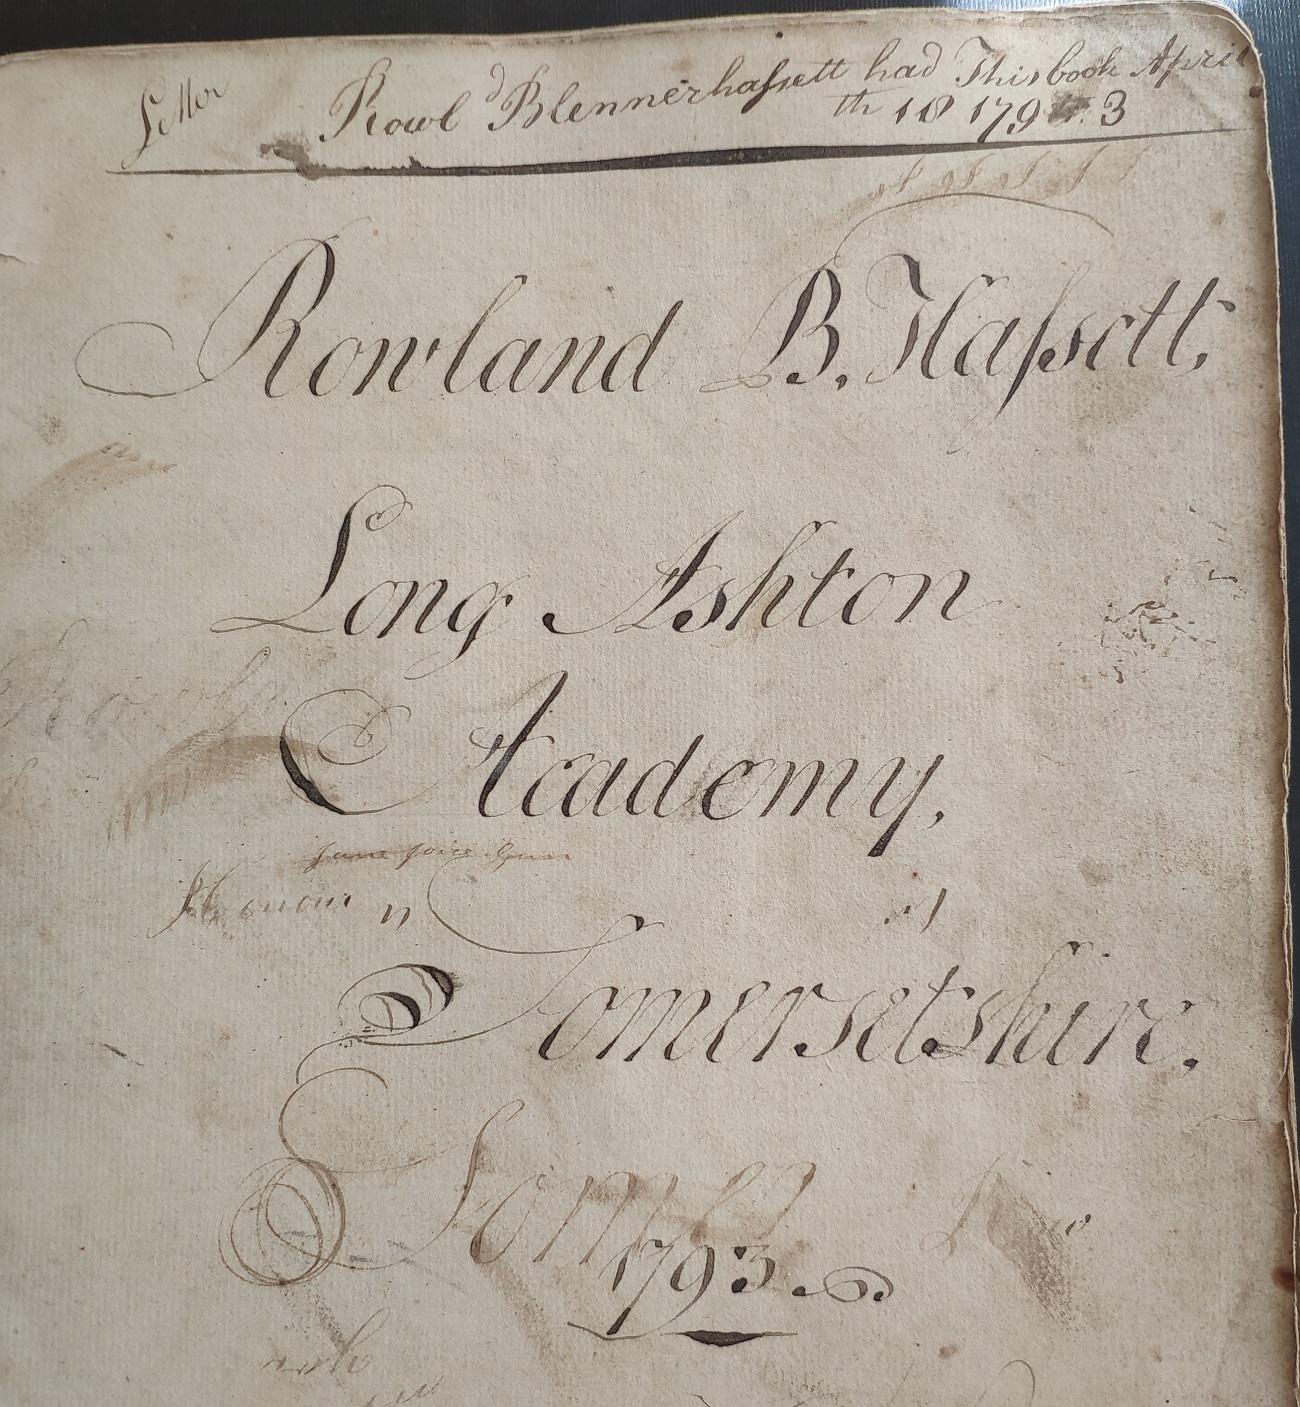 Rowl^d Blennerhaſsett had This book April
th 18 1793
Rowland B. Haſsett,
Long Ashton
Academy,
Honour
Somersetshire.
Somers
1793